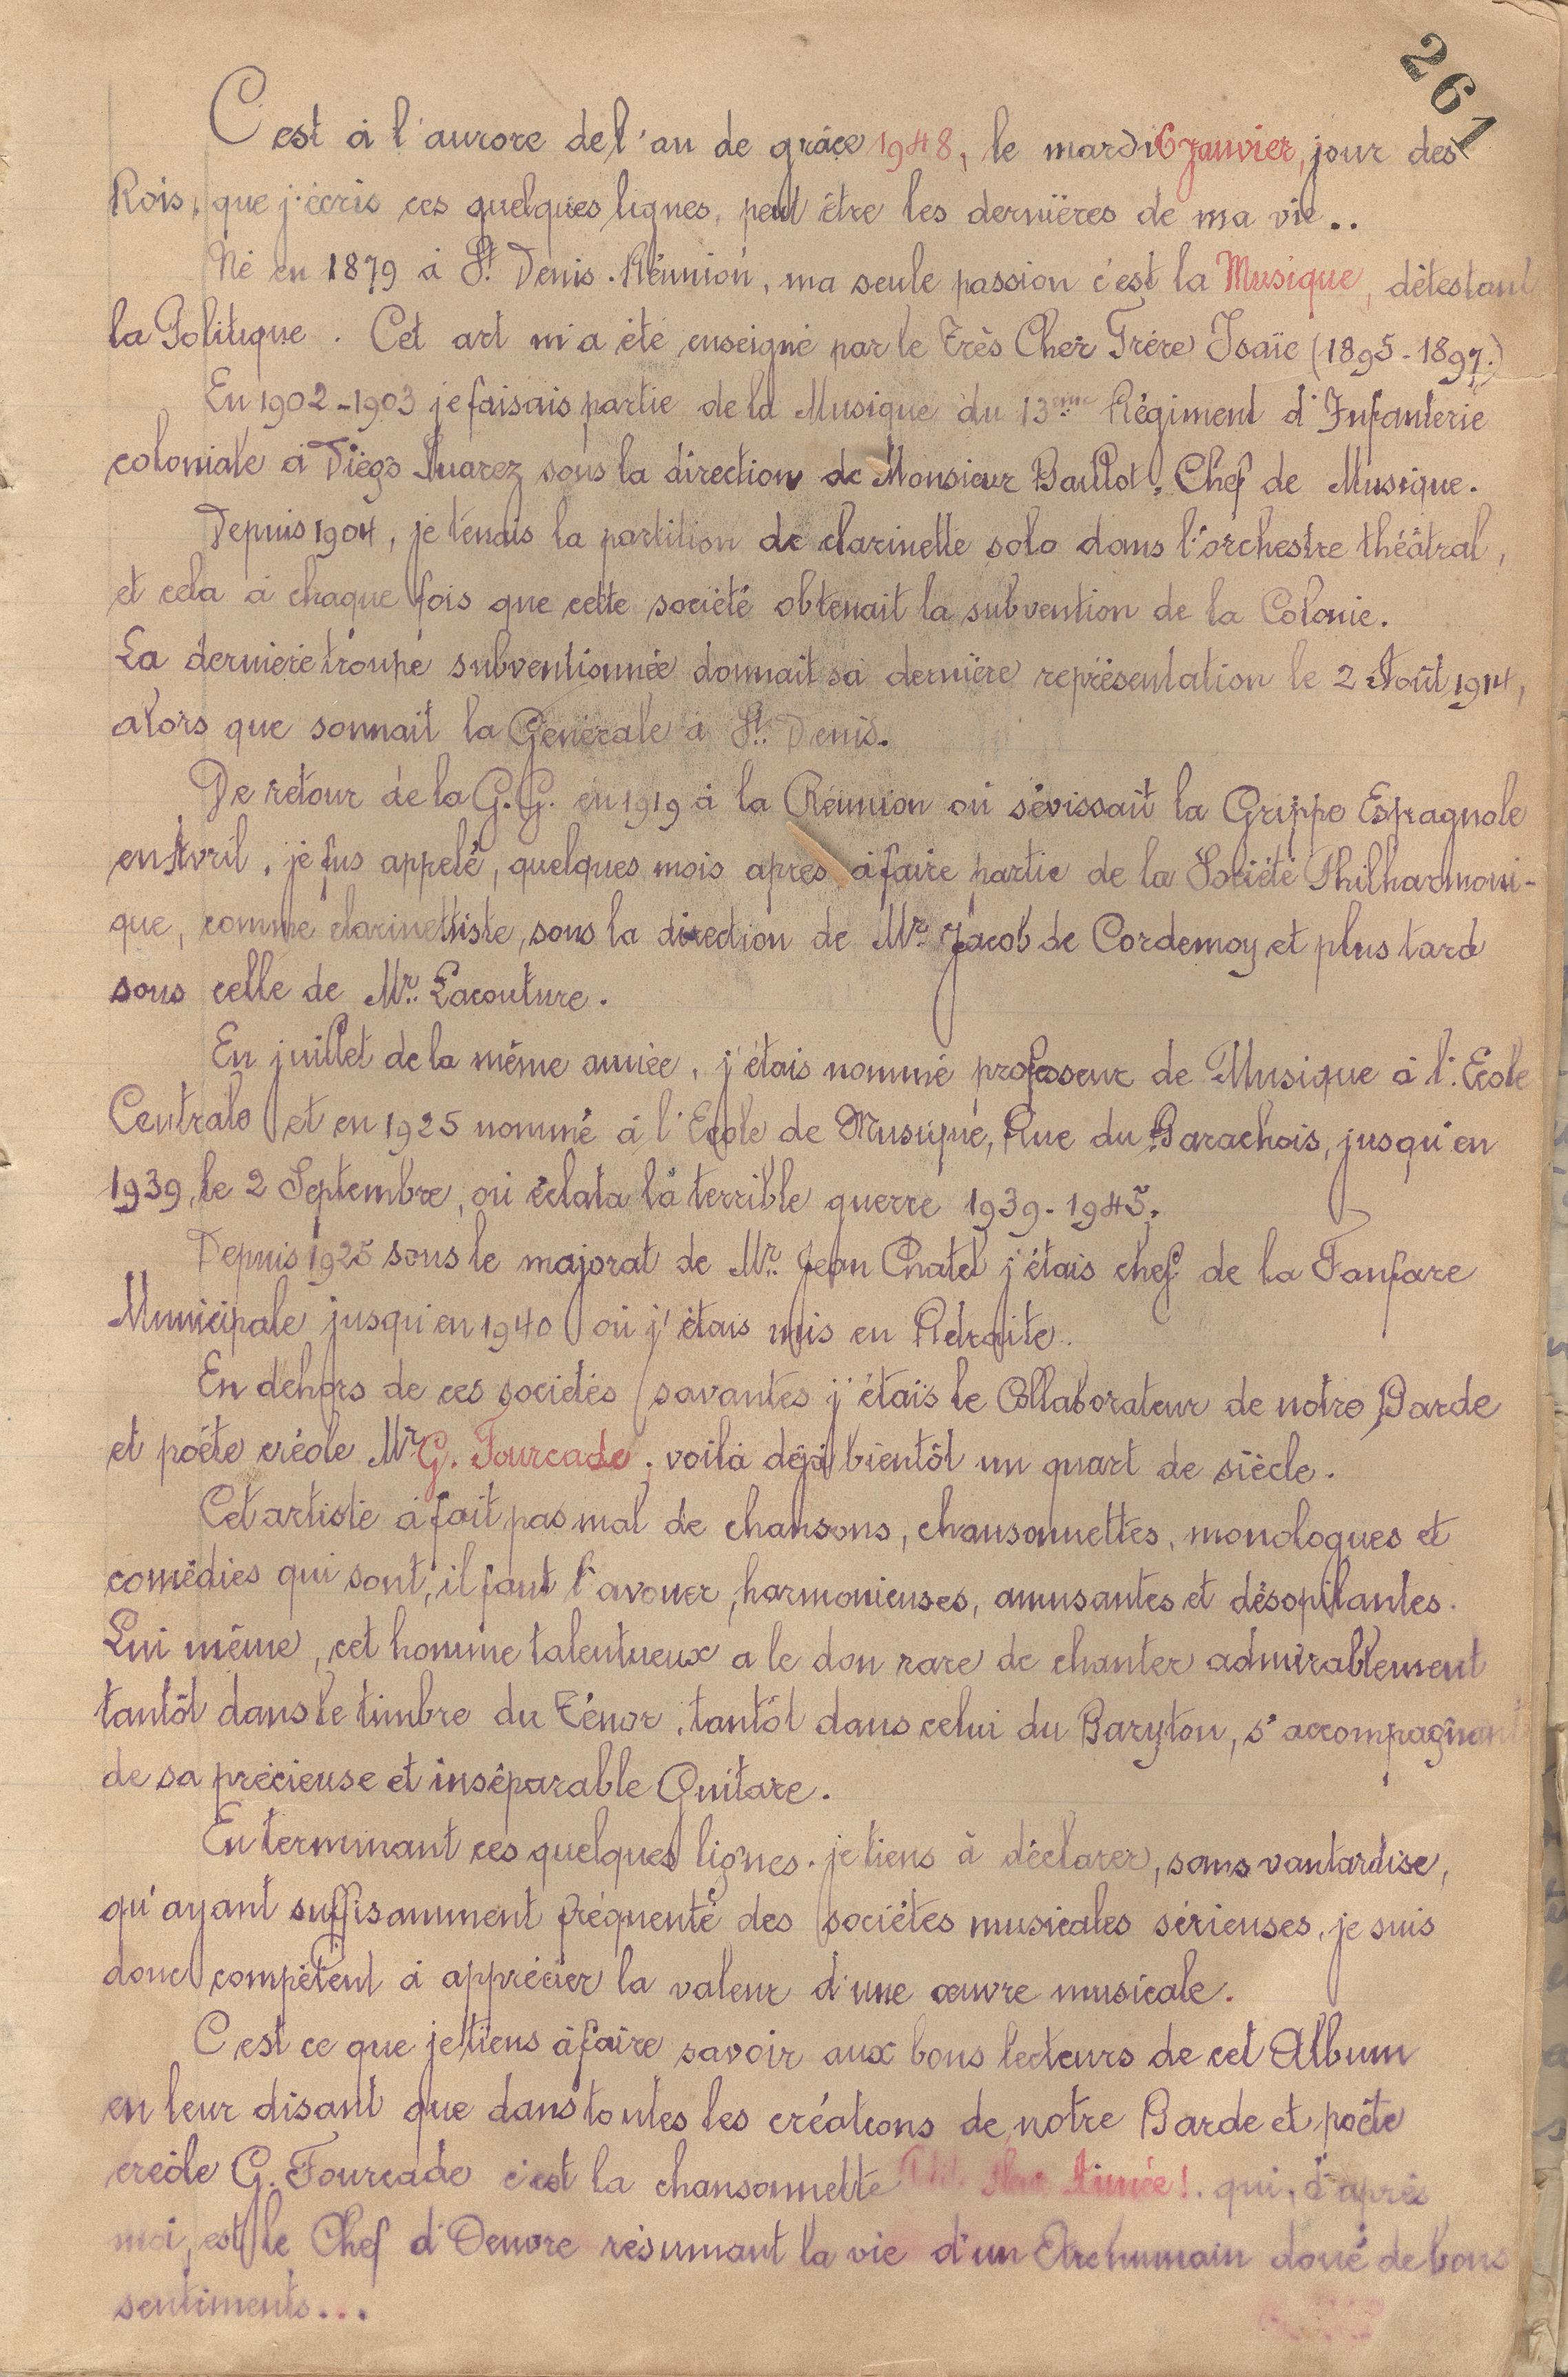 261
C'est à l'aurore de l'an de grâce 1948, le mardi 6 Janvier, jour des
Rois, que j'écris ces quelques lignes, peut être les dernières de ma vie..
Né en 1879 à St. Denis. Réunion, ma seule passion c'est la Musique, détestant
la Politique. Cet art m'a été enseigné par le Très Cher Frère Isaïe (1895-1897.)
En 1902-1903 je faisais partie de la Musique du 13eme Régiment d'Infanterie
coloniale à Diégo Suarez sous la direction de Monsieur Baillot, Chef de Musique.
Depuis 1904, je tenais la partition de clarinette solo dans l'orchestre théâtral,
et cela à chaque fois que cette société obtenait la subvention de la Colonie.
La dernière troupe subventionnée donnait sa dernière représentation le 2 Août 1914,
alors que sonnait la Générale à St. Denis.
De retour de la G.G. en 1919 à la Réunion où sévissait la Grippe Espagnole
en Avril, je fus appelé, quelques mois après à faire partie de la Société Philharmoni-
que, comme clarinettiste, sous la direction de Mr. Jacob de Cordemoy et plus tard
sous celle de Mr. Lacouture.
En juillet de la même année, j'étais nommé professeur de Musique à l'Ecole
Centrale et en 1925 nommé à l'Ecole de Musique, Rue du Barachois, jusqu'en
1939, le 2 Septembre, où éclata la terrible guerre 1939-1945.
Depuis 1925 sous le majorat de Mr. Jean Chatel j'étais chef de la Fanfare
Municipale jusqu'en 1940 où j'étais mis en Retraite.
En dehors de ces sociétés savantes j'étais le Collaborateur de notre Barde
et poëte créole Mr G. Fourcade; voilà déjà bientôt un quart de siècle.
Cet artiste a fait pas mal de chansons, chansonnettes, monologues et
comédies qui sont, il faut l'avouer, harmonieuses, amusantes et désopilantes.
Lui même, cet homme talentueux a le don rare de chanter admirablement
tantôt dans le timbre du Ténor, tantôt dans celui du Baryton, s'accompagnant
de sa précieuse et inséparable Guitare.
En terminant ces quelques lignes. je tiens à déclarer, sans vantardise,
qu'ayant suffisamment fréquenté des sociétés musicales sérieuses, je suis
donc compétent à apprécier la valeur d'une œuvre musicale.
C'est ce que je tiens à faire savoir aux bons lecteurs de cet Album
en leur disant que dans toutes les créations de notre Barde et poëte
créole G. Fourcade c'est la chansonnette Aimée!. qui, d'après
moi, est le Chef d'Oeuvre résumant la vie d'un Etre humain doué de bons
sentiments...